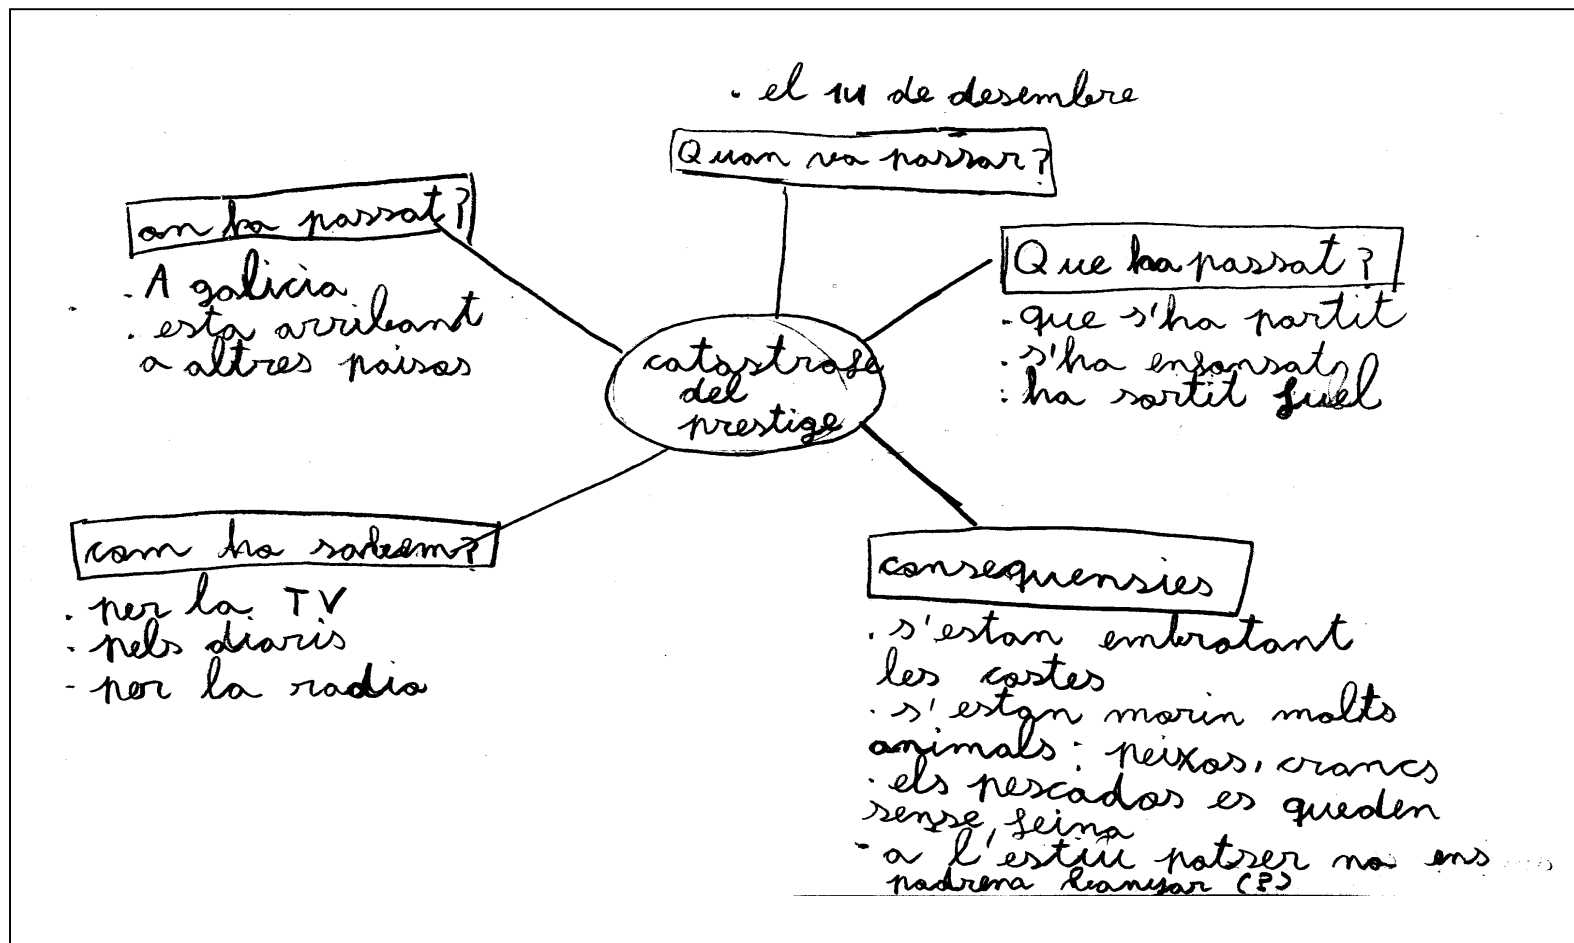 . el 14 de desembre
Quan va passar?
on ha passat?
. A galicia
. esta arribant
a altres paisos
Que ha passat?
. que s'ha partit
. s'ha enfonsat
. ha sortit fuel
catastrofe
del
prestige
com ho sabem?
. per la TV
. pels diaris
- per la radio
consequensies
. s'estan embrutant
les costes
. s'estan morin molts
animals: peixos, crancs
. els pescados es queden
sense feina
- a l'estiu potser no ens
podrena banyar (?)